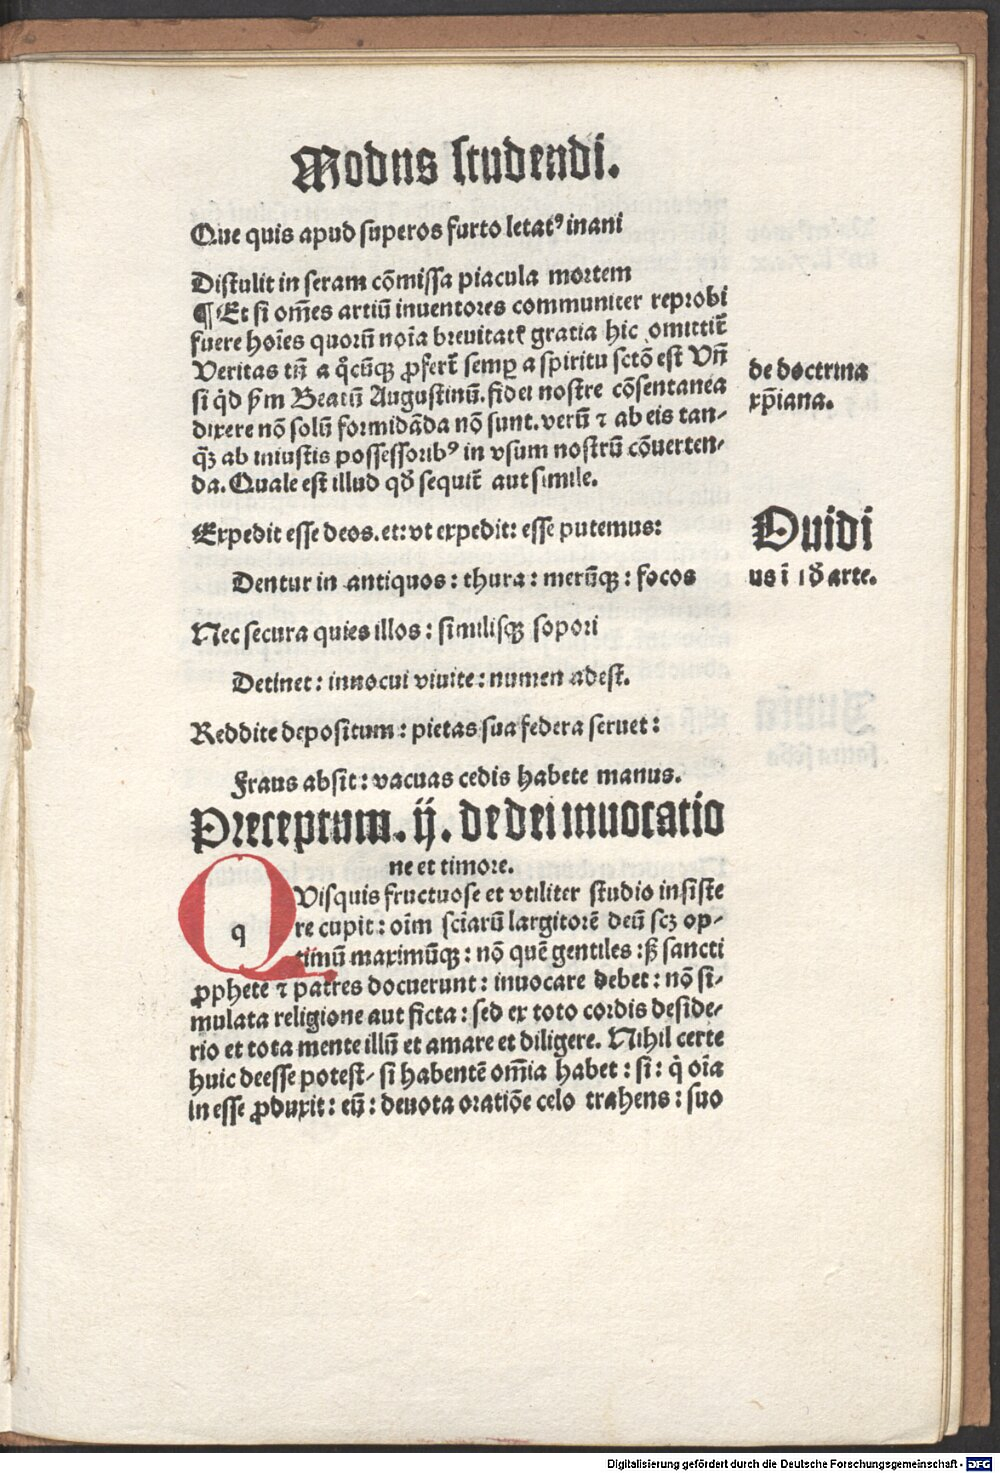 Modus studendi.
Que quis apud superos furto letatꝰ inani
Distulit in seram cõmissa piacula mortem
¶ Et si om̃es artiũ inuentores communiter reprobi
fuere hoĩes quorũ noĩa breuitatꝭ gratia hic omittit̃
Veritas tñ a q̊cũqꝫ ꝓfert̃ semꝑ a spiritu sctõ est Vñ
si q̇d ẜm Beatũ Augustinũ. fidei nostre cõsentanea
dixere nõ solũ formidãda nõ sunt. verũ ⁊ ab eis tan-
q̃ꝫ ab iniustis possessoribꝰ in vsum nostrũ cõuerten-
da. Quale est illud qd̛ sequit̃ aut simile.
de doctrina
xp̃iana.
Expedit esse deos. et: vt expedit: esse putemus:
Dentur in antiquos: thura: merũqꝫ: focos
Ouidi
us ĩ id̛ arte.
Nec secura quies illos: similisqꝫ sopori
Detinet: innocui viuite: numen adest.
Reddite depositum: pietas sua federa seruet:
Fraus absit: vacuas cedis habete manus.
Preceptum. ij. de dei inuocatio
ne et timore.
q
QVisquis fructuose et vtiliter studio insiste
re cupit: oĩm sciarũ largitorẽ deũ scꝫ op-
timũ maximũqꝫ: nõ quẽ gentiles: ꝭꝫ sancti
ꝓphete ⁊ patres docuerunt: inuocare debet: nõ si-
mulata religione aut ficta: sed ex toto cordis deside-
rio et tota mente illũ et amare et diligere. Nihil certe
huic deesse potest- si habentẽ om̃ia habet: si: q̇ oĩa
in esse ꝓduxit: eũ: deuota oratiõe celo trahens: suo
Digitalisierung gefördert durch die Deutsche Forschungsgemeinschaft - DFG